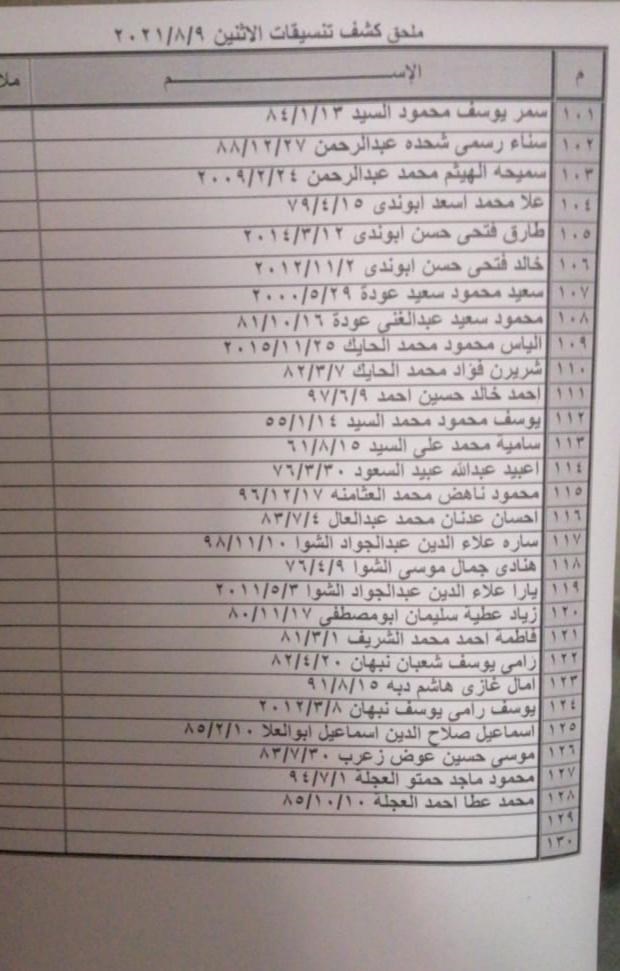 ملحق كشف تنسيقات الاثنين ٢٠٢١/٨/٩
م الإســـــــــــم ملا
١٠١ سمر يوسف محمود السيد ٨٤/١/١٣
١٠٢ سناء رسمى شحده عبدالرحمن ٨٨/١٢/٢٧
١٠٣ سميحه الهيثم محمد عبدالرحمن ٢٠٠٩/٢/٢٤
١٠٤ علا محمد اسعد ابوندى ٧٩/٤/١٥
١٠٥ طارق فتحى حسن ابوندى ٢٠١٤/٣/١٢
١٠٦ خالد فتحى حسن ابوندى ٢٠١٢/١١/٢
١٠٧ سعيد محمود سعيد عودة ٢٠٠٠/٥/٢٩
١٠٨ محمود سعيد عبدالغنى عودة ٨١/١٠/١٦
١٠٩ الياس محمود محمد الحايك ٢٠١٥/١١/٢٥
١١٠ شريرن فؤاد محمد الحايك ٨٢/٣/٧
١١١ احمد خالد حسين احمد ٩٧/٦/٩
١١٢ يوسف محمود محمد السيد ٥٥/١/١٤
١١٣ سامية محمد على السيد ٦١/٨/١٥
١١٤ اعبيد عبدالله عبيد السعود ٧٦/٣/٣٠
١١٥ محمود ناهض محمد العثامنه ٩٦/١٢/١٧
١١٦ احسان عدنان محمد عبدالعال ٨٣/٧/٤
١١٧ ساره علاء الدين عبدالجواد الشوا ٩٨/١١/١٠
١١٨ هنادى جمال موسى الشوا ٧٦/٤/٩
١١٩ يارا علاء الدين عبدالجواد الشوا ٢٠١١/٥/٣
١٢٠ زياد عطية سليمان ابومصطفى ٨٠/١١/١٧
١٢١ فاطمة احمد محمد الشريف ٨١/٣/١
١٢٢ رامى يوسف شعبان نبهان ٨٢/٤/٢٠
١٢٣ امال غازى هاشم دبه ٩١/٨/١٥
١٢٤ يوسف رامى يوسف نبهان ٢٠١٢/٣/٨
١٢٥ اسماعيل صلاح الدين اسماعيل ابوالعلا ٨٥/٢/١٠
١٢٦ موسى حسين عوض زعرب ٨٣/٧/٣٠
١٢٧ محمود ماجد حمتو العجلة ٩٤/٧/١
١٢٨ محمد عطا احمد العجلة ٨٥/١٠/١٠
١٢٩
١٣٠